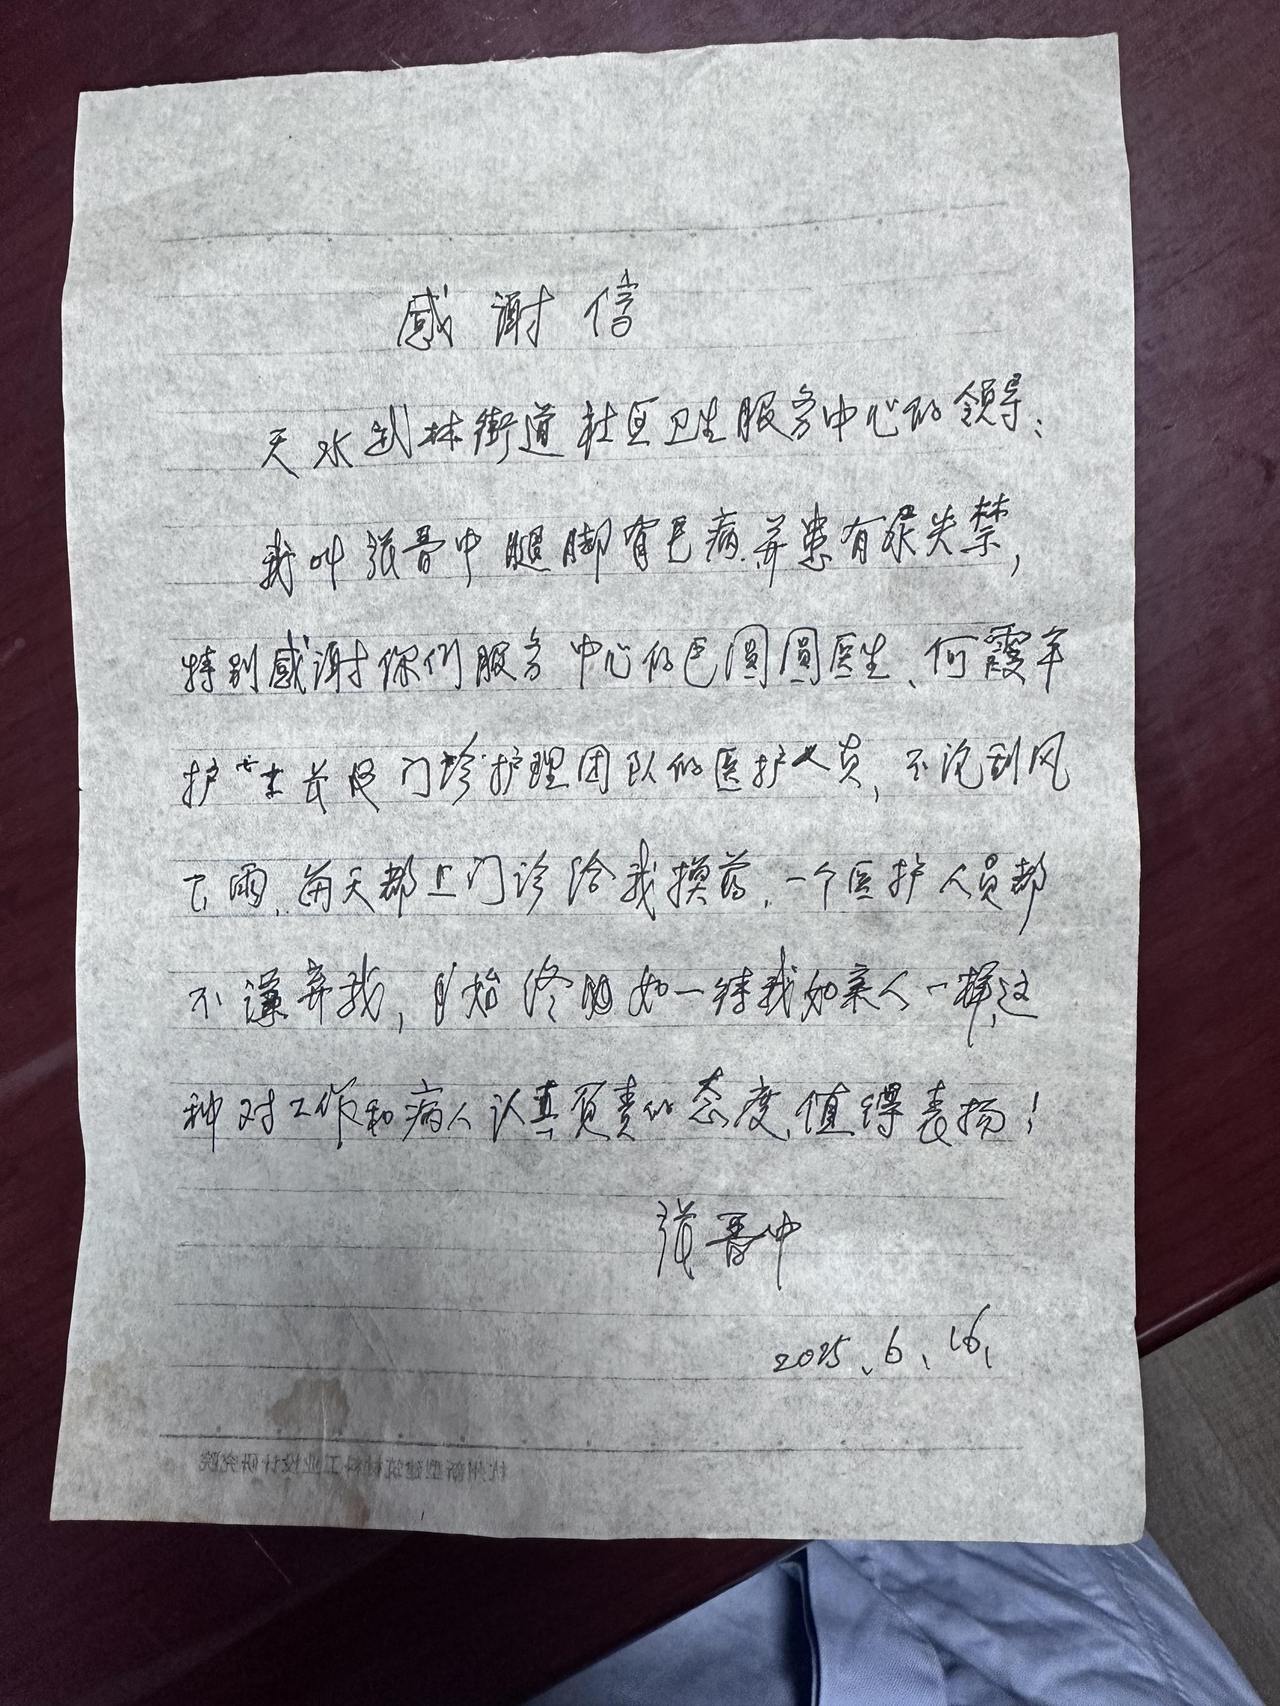 感谢信
天水武林街道社区卫生服务中心的领导:
我叫张晋中腿脚有毛病.并患有尿失禁,
特别感谢你们服务中心的包圆圆医生、何霞平
护士长及门诊护理团队的医护人员,不论刮风
下雨,每天都上门诊给我换药,一个医护人员都
不嫌弃我,自始终如一待我如亲人一样,这
种对工作和病人认真负责的态度,值得表扬!
张晋中
2025.6.16.
杭州新型建筑材料工业设计研究院